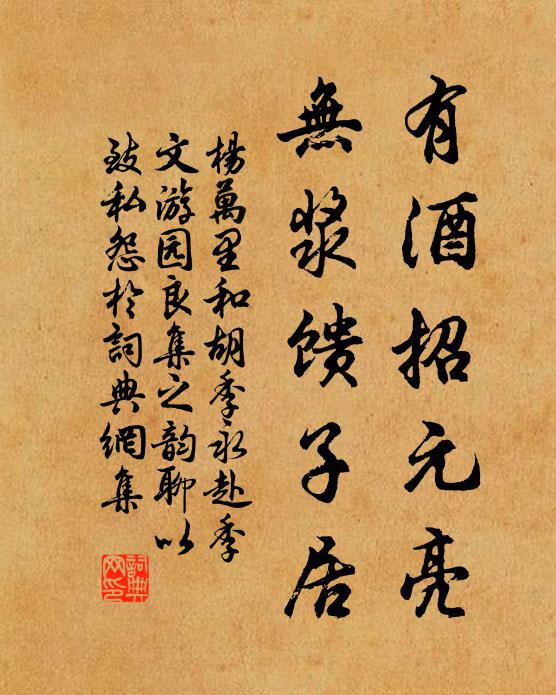 有酒招元亮
無漿馈子居
楊萬里和胡季永赴季
文游园良集之韵聊以
致私怨於詞典網集
詞典
网印